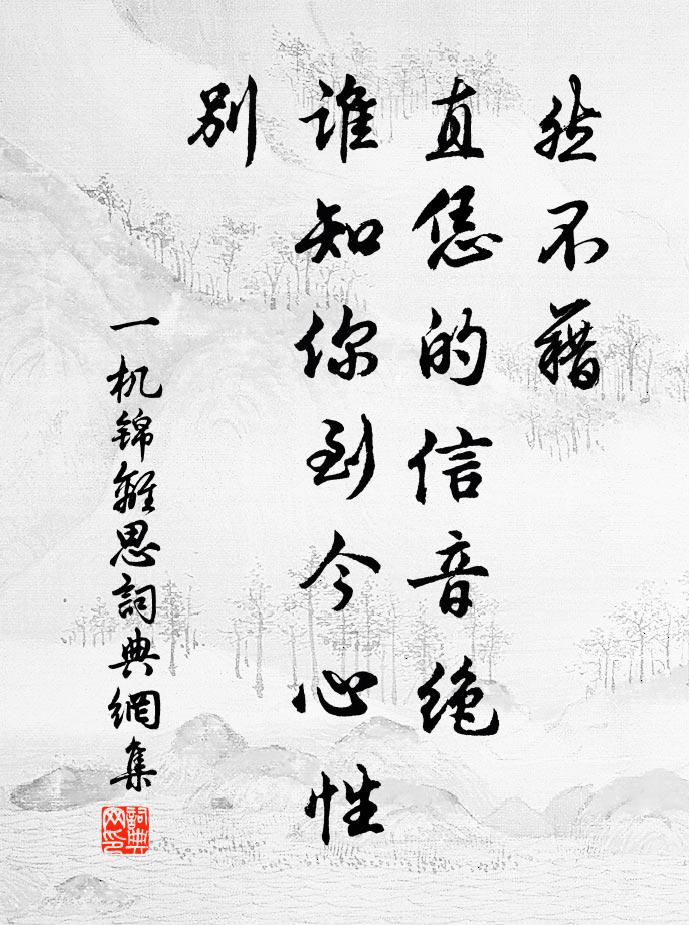 然不藉
直恁的信音绝
谁知你到今心性
别
一机锦離思詞典網集
詞典网印